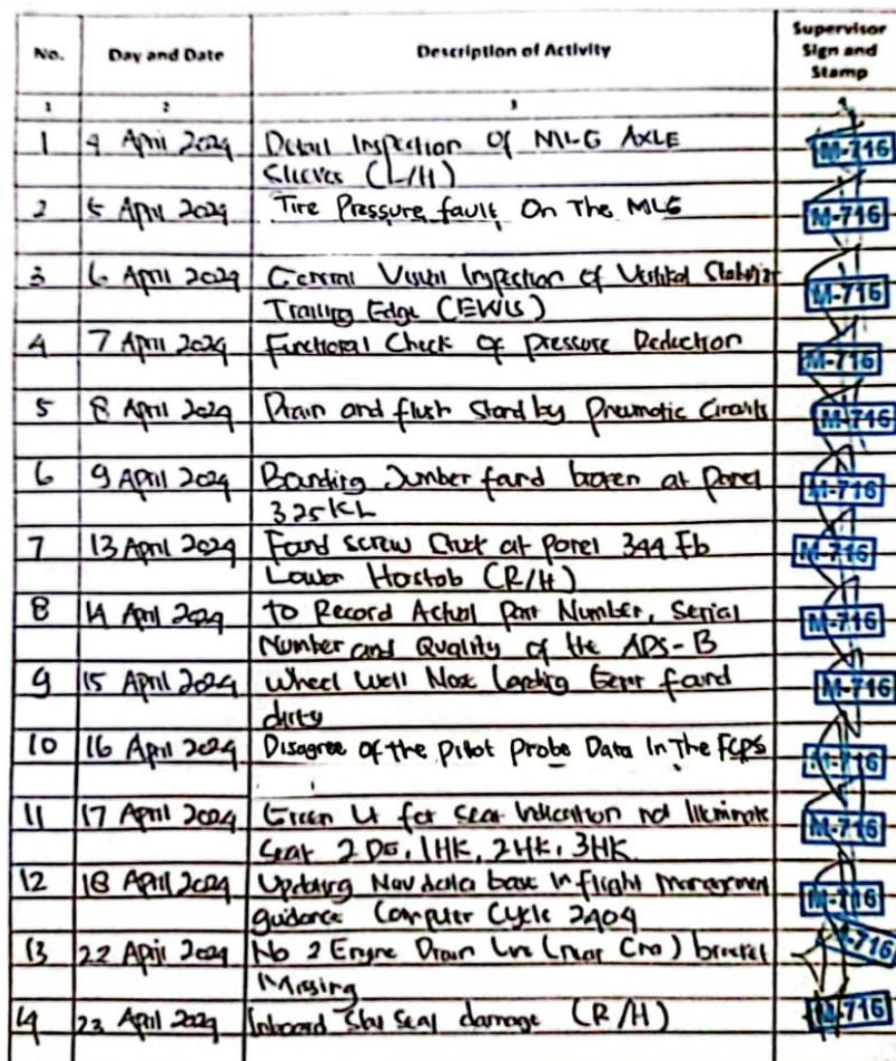 No.
Day and Date
Description of Activity
Supervisor
Sign and
Stamp
1
2
3
1
4 April 2024
Detail Inspection Of MLG AXLE
(L/H)
M-716
2
5 April 2024
Tire Pressure fault On The MLG
M-716
3
6 April 2024
General Visual Inspection of
Trailing Edge (EWIS)
M-716
4
7 April 2024
Functional Check Of pressure Deduction
M-716
5
8 April 2024
Drain and flush Stand by Pneumatic Circuits
M-716
6
9 April 2024
Bonding Jumber found at panel
325KL
M-716
7
13 April 2024
Found screw at panel 344
Lower (R/H)
M-716
8
14 April 2024
to Record Actual Part Number, Serial
Number and Quality of the ADS-B
M-716
9
15 April 2024
Wheel Well Nose Landing Gear found
dirty
M-716
10
16 April 2024
Disagree Of the Pitot Probe Data In The
M-716
11
17 April 2024
Green for seat Indication not
Seat 2DG, 1HK, 2HK, 3HK
M-716
12
18 April 2024
Updating Nav data base In flight management
guidance Computer Cycle 2404
M-716
13
22 April 2024
No 2 Engine Drain Line (near) bracket
Missing
M-716
14
23 April 2024
Inboard Seal damage (R/H)
M-716